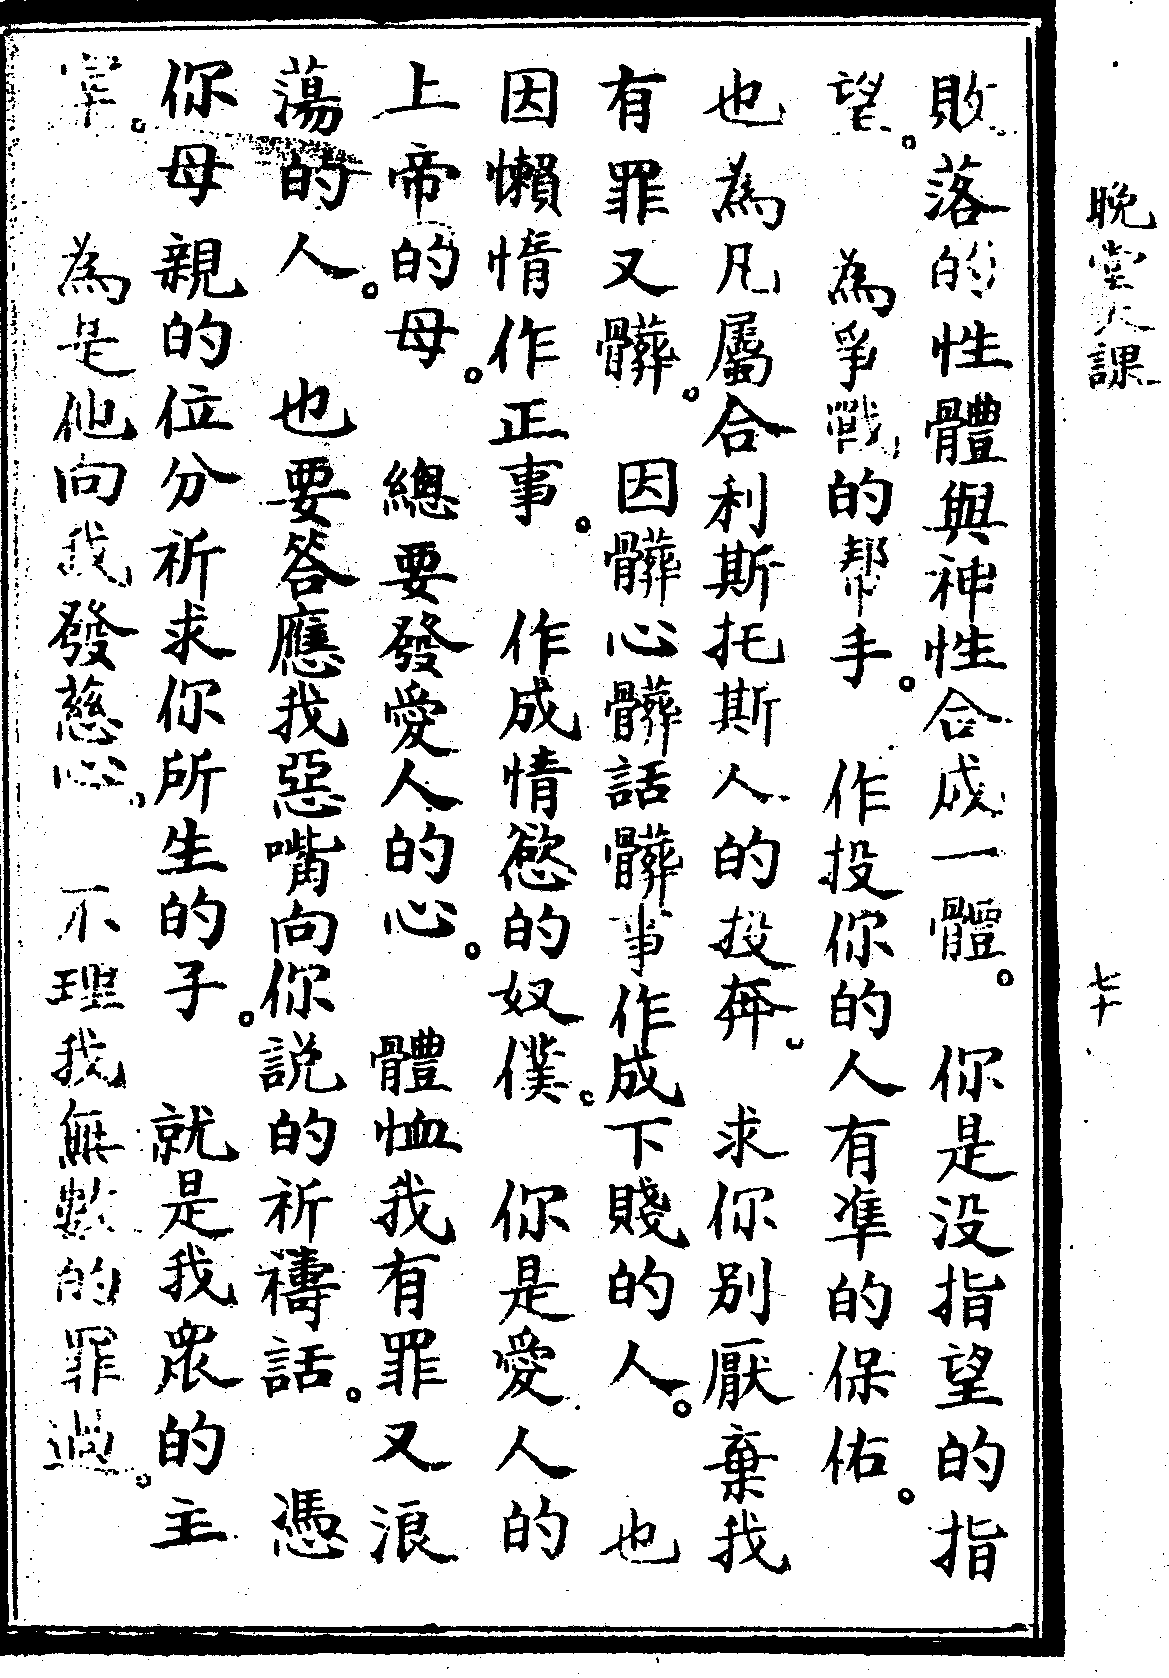 晚堂大課
七十
敗落的性體與神性合成一體。你是没指望的指
望。為爭戰的帮手。作投你的人有凖的保佑。
也為凡屬合利斯托斯人的投奔。求你別厭棄我
有罪又髒。因髒心髒話髒事作成下賤的人。也
因懶惰作正事。作成情慾的奴僕。你是愛人的
上帝的母。總要發愛人的心。體恤我有罪又浪
蕩的人。也要答應我惡嘴向你説的祈禱話。憑
你母親的位分祈求你所生的子。就是我眾的主
宰。為是他向我發慈心。不理我無數的罪過。